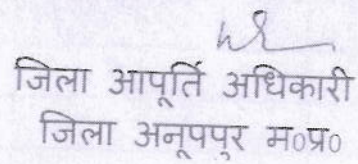 जिला आपूर्ति अधिकारी
जिला अनूपपुर म०प्र०